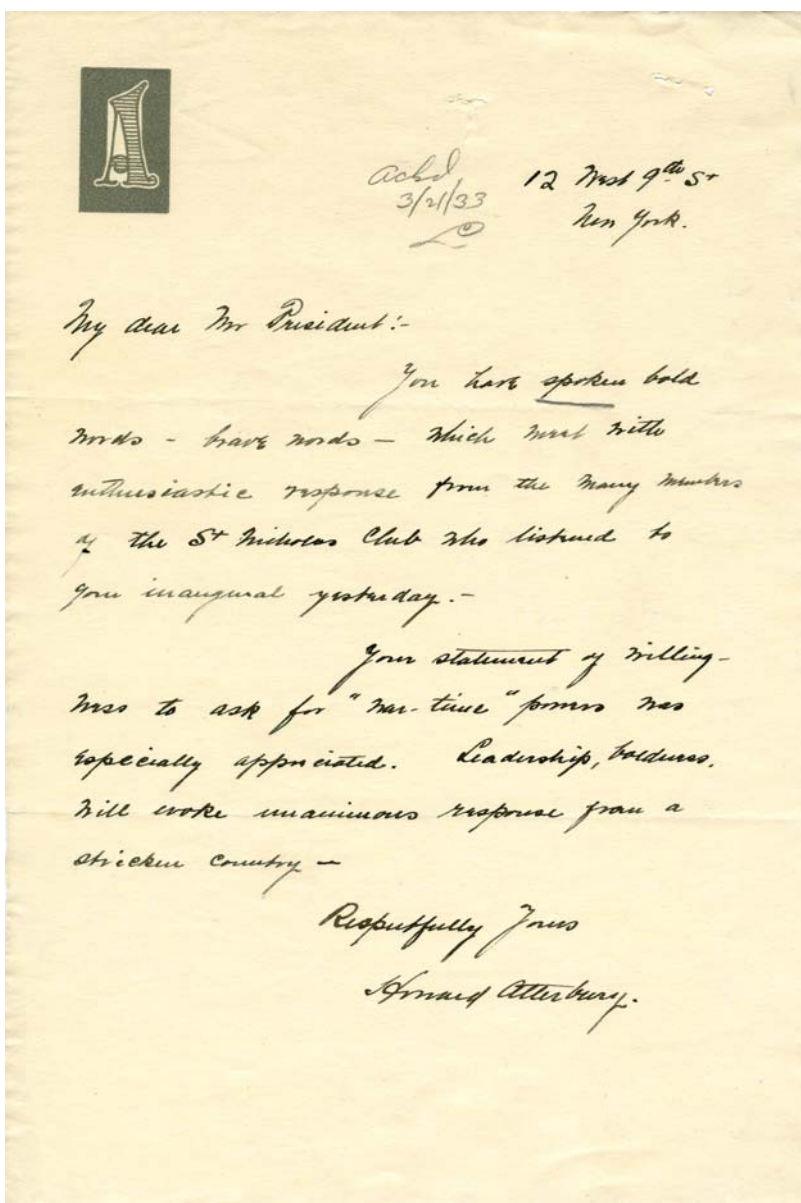 A
ackd
3/21/33
12 West 9th St
New York.
My dear Mr President:-
You have spoken bold
words - brave words - which meet with
enthusiastic response from the many members
of the St Nicholas Club who listened to
your inaugural yesterday.-
Your statement of willing-
ness to ask for "war-time" powers was
especially appreciated. Leadership, boldness,
will evoke unanimous response from a
stricken country -
Respectfully Yours
Howard Atterbury.